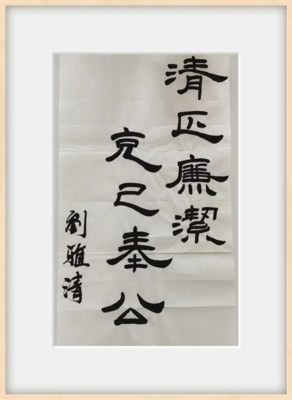 清正廉潔
克己奉公
劉雅清